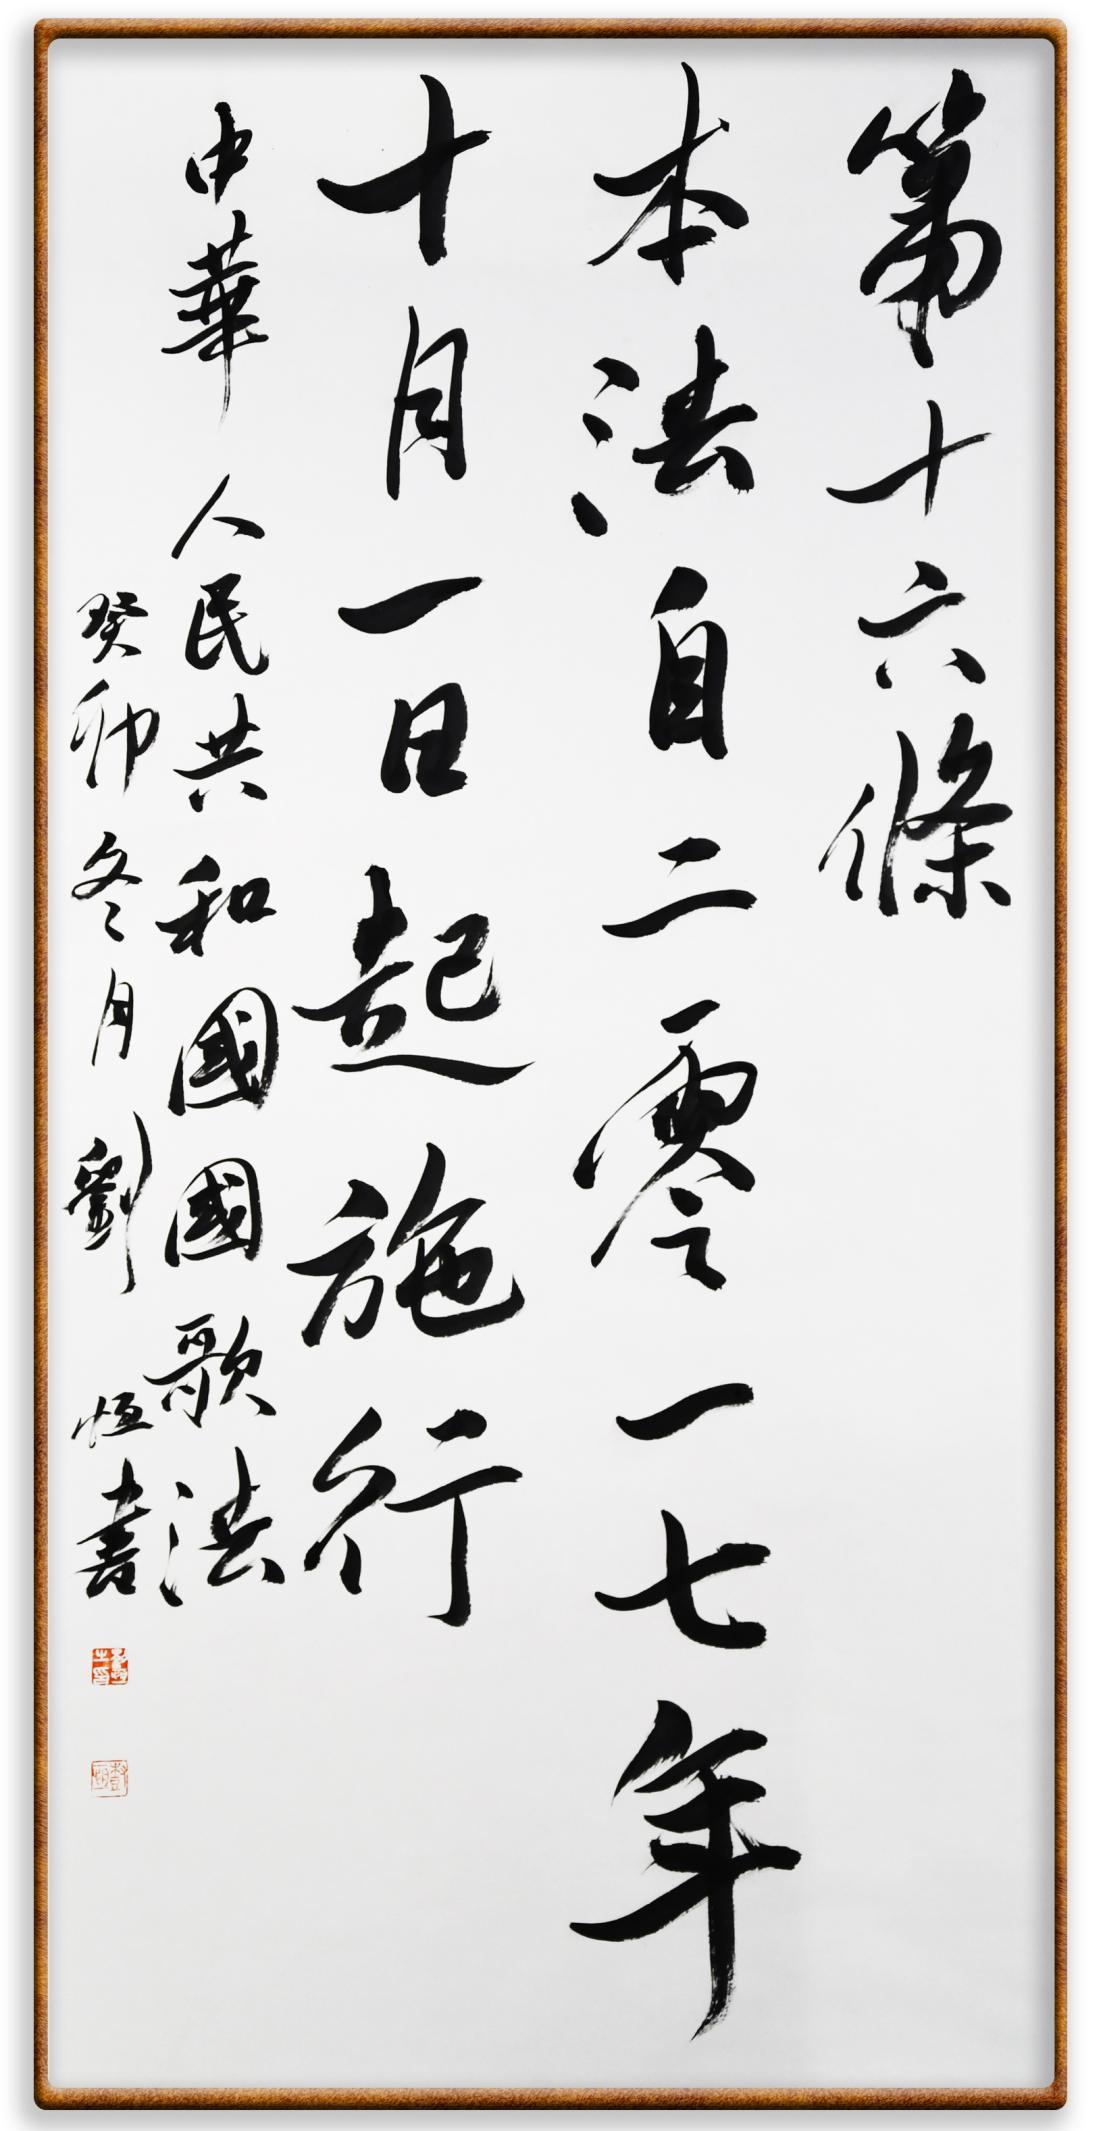 第十六條
本法自二零一七年
十月一日起施行
中華人民共和國國歌法
癸卯冬月劉恒書